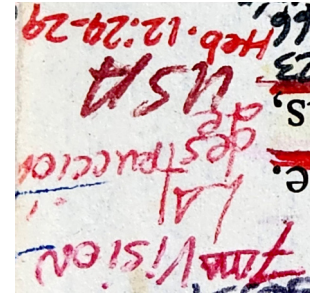 7ma Vision
LA
destruccion
de
USA
Heb. 12:24-29
e.
s,
23